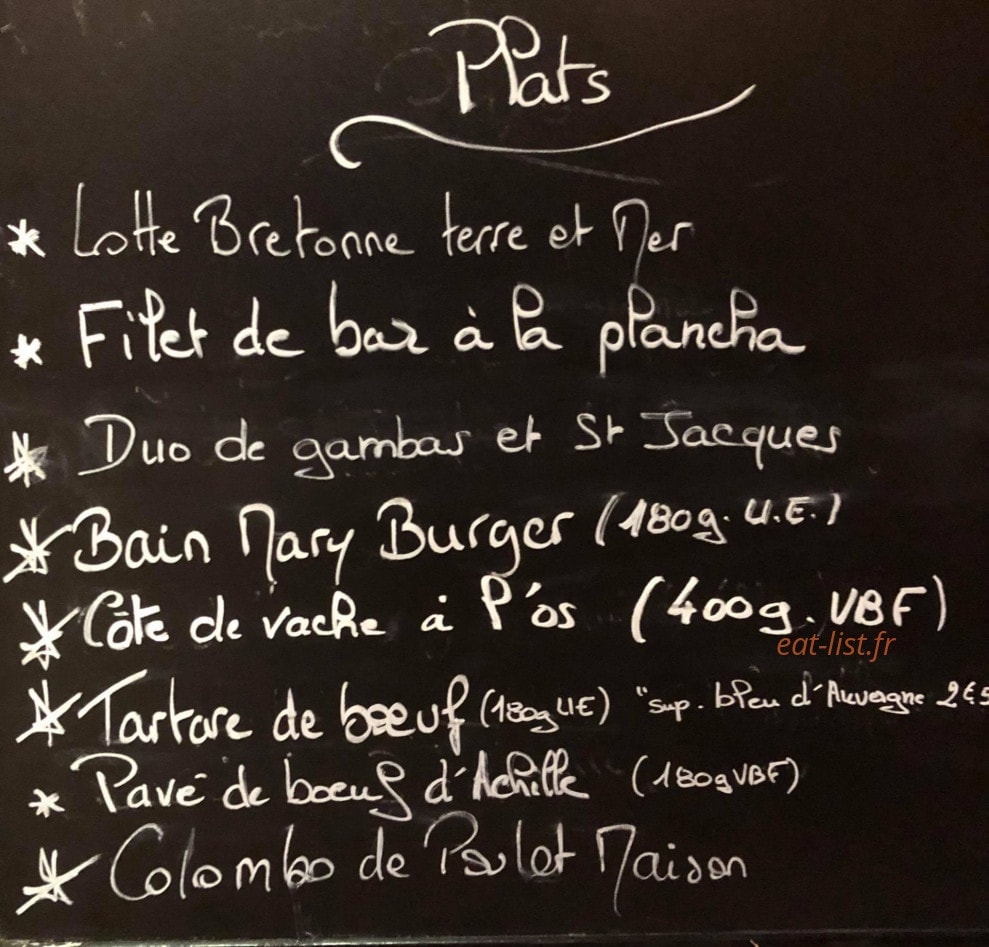 Plats
* Lotte Bretonne terre et Mer
* Filet de bar à la plancha
* Duo de gambas et St Jacques
* Bain Mary Burger (180g. U.E.)
* Côte de vache à l'os (400g. VBF)
eat-list.fr
* Tartare de boeuf (180g UE) "sup. bleu d'Auvergne 2€5
* Pavé de boeuf d'Achille (180g VBF)
* Colombo de Poulet Maison